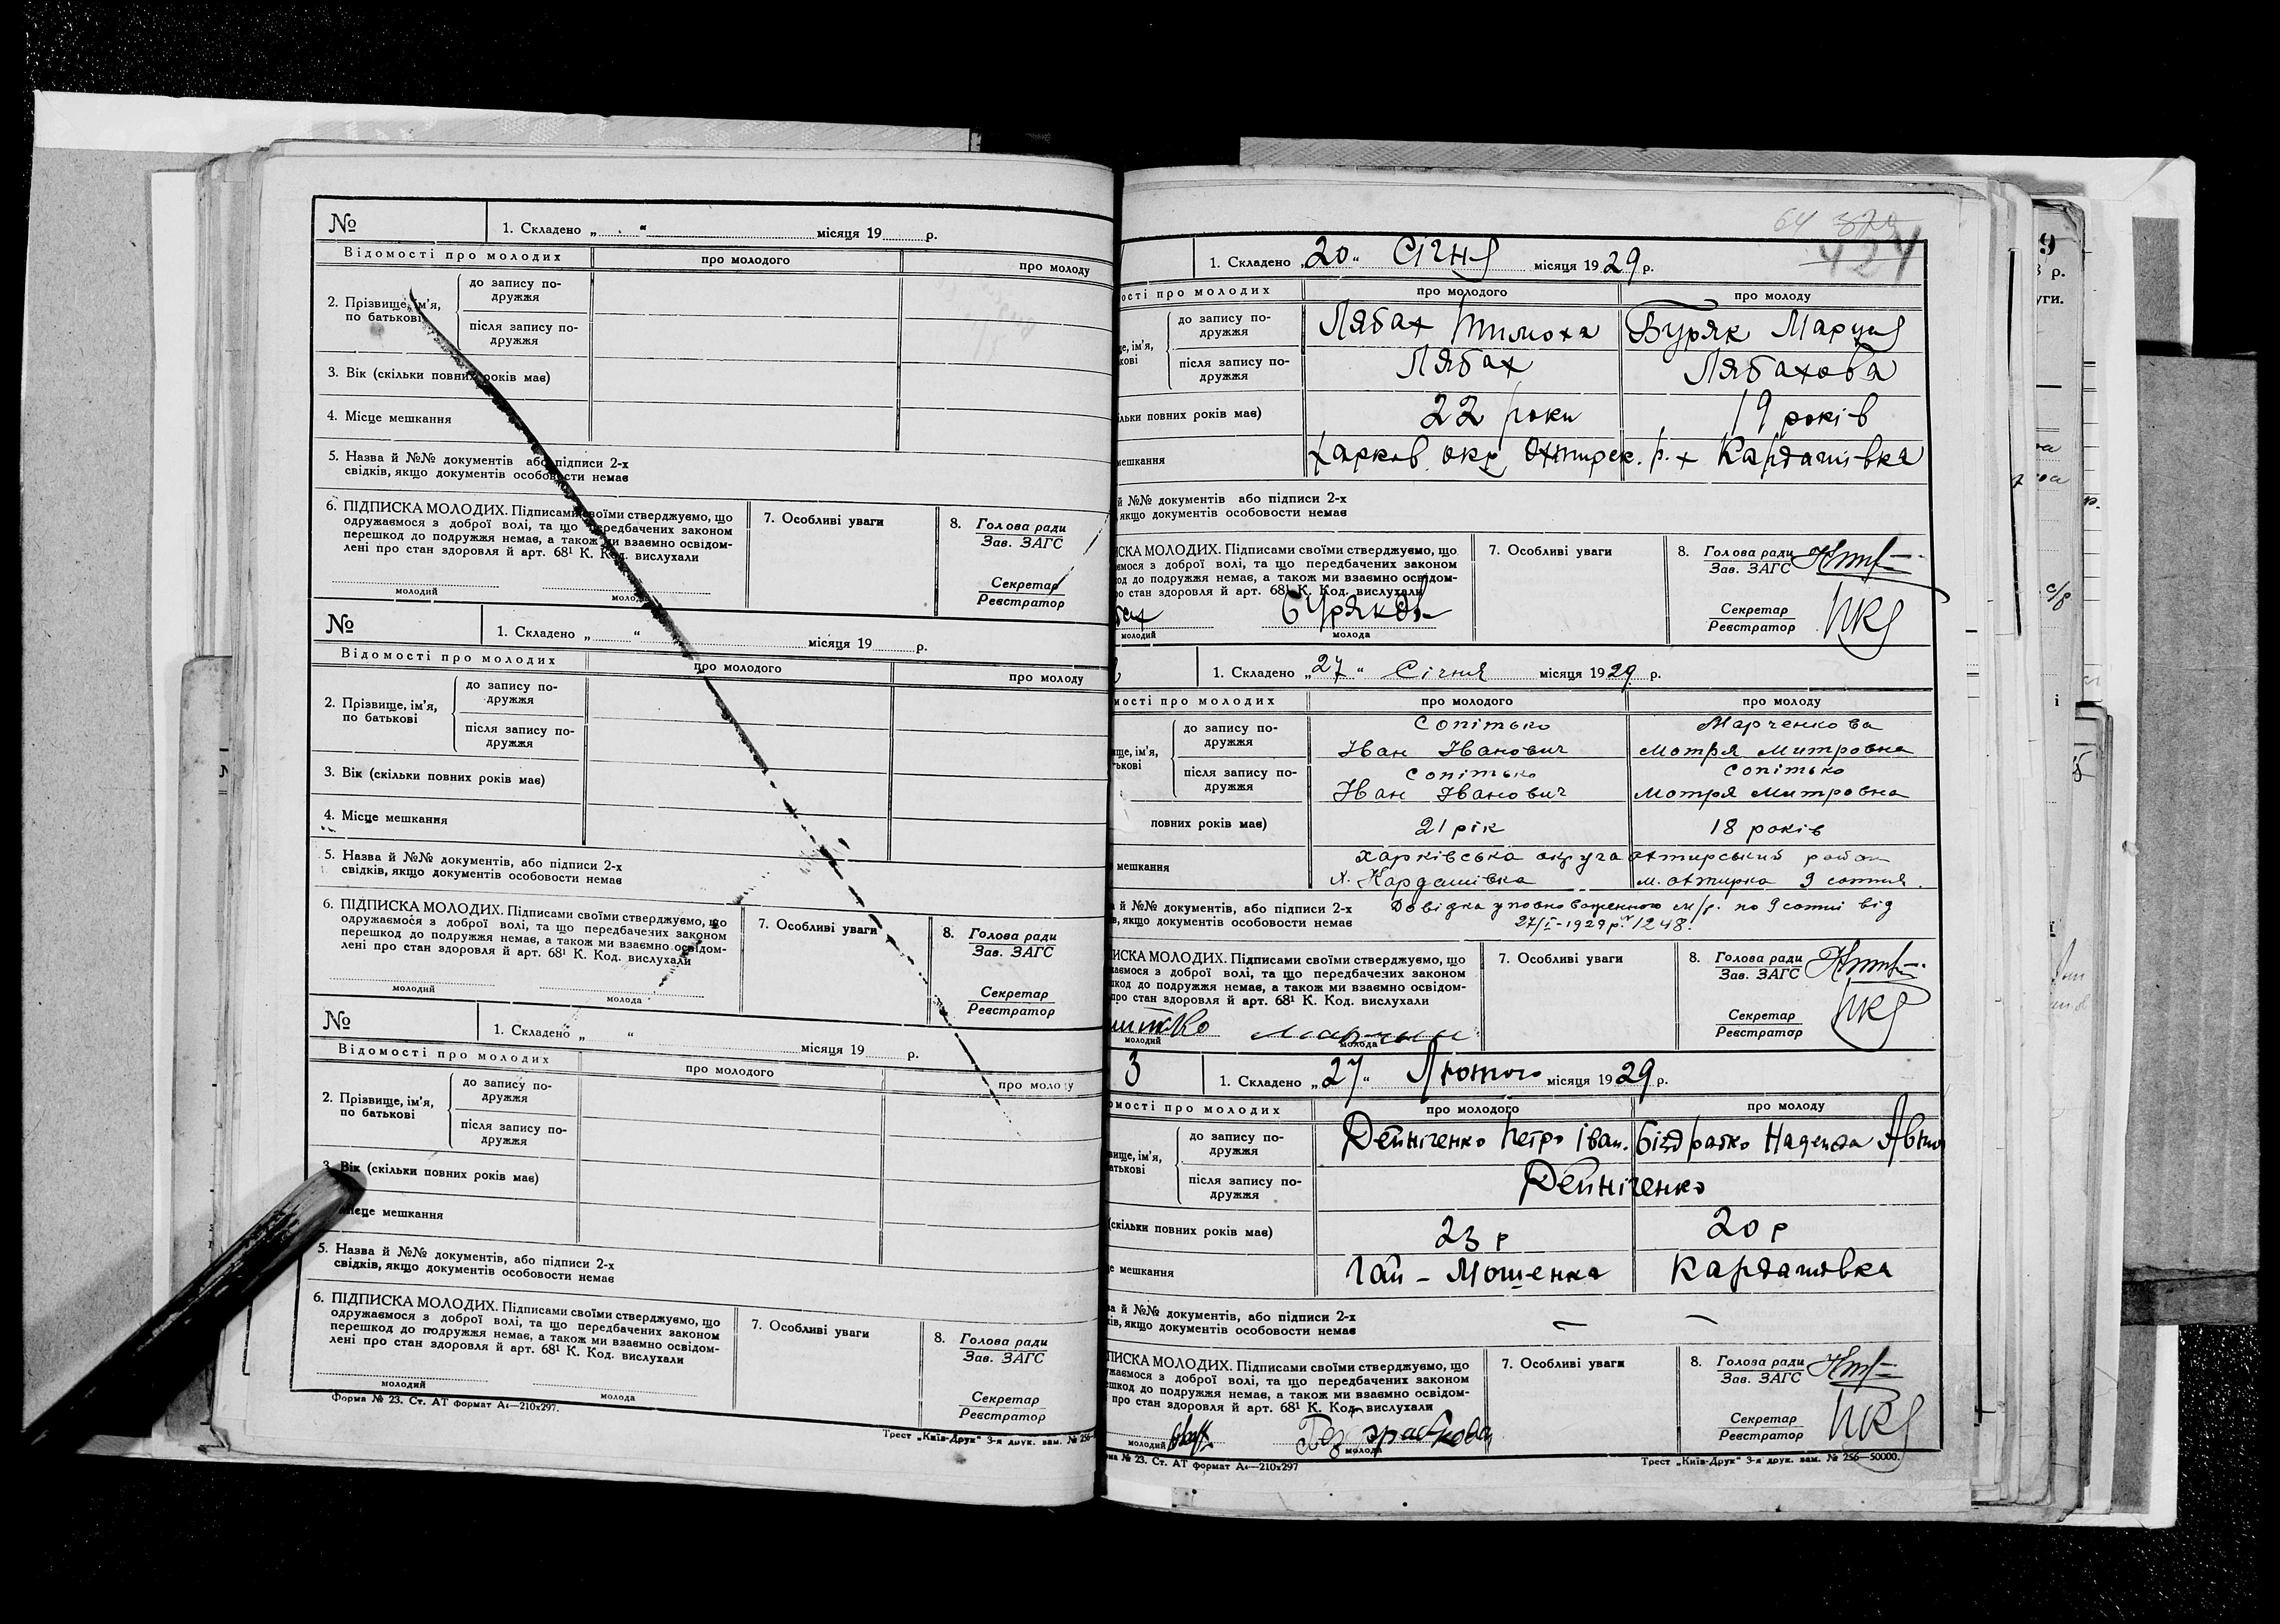 №
1. Складено „ “ місяця 19 р.
Відомості про молодих
про молодого
про молоду
2. Прізвище, ім’я, по батькові
до запису по-
дружжя
після запису по-
дружжя
3. Вік (скільки повних років має)
4. Місце мешкання
5. Назва й №№ документів або підписи 2-х
свідків, якщо документів особовости немає
6. ПІДПИСКА МОЛОДИХ. Підписами своїми стверджуємо, що
одружаємося з доброї волі, та що передбачених законом
перешкод до подружжя немає, а також ми взаємно освідом-
лені про стан здоровля й арт. 68¹ К. Код. вислухали
молодий
молода
7. Особливі уваги
8. Голова ради
Зав. ЗАГС
Секретар
Реєстратор
№
1. Складено „ “ місяця 19 р.
Відомості про молодих
про молодого
про молоду
2. Прізвище, ім’я,
по батькові
до запису по-
дружжя
після запису по-
дружжя
3. Вік (скільки повних років має)
4. Місце мешкання
5. Назва й №№ документів, або підписи 2-х
свідків, якщо документів особовости немає
6. ПІДПИСКА МОЛОДИХ. Підписами своїми стверджуємо, що
одружаємося з доброї волі, та що передбачених законом
перешкод до подружжя немає, а також ми взаємно освідом-
лені про стан здоровля й арт. 68¹ К. Код. вислухали
молодий
молода
7. Особливі уваги
8. Голова ради
Зав. ЗАГС
Секретар
Реєстратор
№
1. Складено „ “ місяця 19 р.
Відомості про молодих
про молодого
про молоду
2. Прізвище, ім’я,
по батькові
до запису по-
дружжя
після запису по-
дружжя
3. Вік (скільки повних років має)
Місце мешкання
5. Назва й №№ документів, або підписи 2-х
свідків, якщо документів особовости немає
6. ПІДПИСКА МОЛОДИХ. Підписами своїми стверджуємо, що
одружаємося з доброї волі, та що передбачених законом
перешкод до подружжя немає, а також ми взаємно освідом-
лені про стан здоровля й арт. 68¹ К. Код. вислухали
молодий
молода
7. Особливі уваги
8. Голова ради
Зав. ЗАГС
Секретар
Реєстратор
Форма № 23. Ст. АТ формат А4—210х297.
Трест „Київ-Друк“ 3-я друк. зам. № 256
64
424
1. Складено „20“ Січня місяця 1929 р.
ості про молодих
про молодого
про молоду
до запису по-
дружжя
Лябах Тимоха
Буряк Марця
після запису по-
дружжя
Лябах
Лябахова
ільки повних років має)
22 роки
19 років
мешкання
Харков. окр Охтирск. р. х Кардашівка
й №№ документів або підписи 2-х
якщо документів особовости немає
ИСКА МОЛОДИХ. Підписами своїми стверджуємо, що
ємося з доброї волі, та що передбачених законом
од до подружжя немає, а також ми взаємно освідом-
о стан здоровля й арт. 68¹ К. Код. вислухали
Бурякова
молодий
молода
7. Особливі уваги
8. Голова ради
Зав. ЗАГС
Секретар
Реєстратор
1. Складено „27“ Січня місяця 1929 р.
мості про молодих
про молодого
про молоду
до запису по-
дружжя
Сопітько
Іван Іванович
Марченкова
Мотря Митровна
після запису по-
дружжя
Сопітько
Іван Іванович
Сопітько
Мотря Митровна
повних років має)
21 рік
18 років
мешкання
Харківська округа Охтирський район
х. Кардашівка
м. Охтирка 9 сотня.
й №№ документів, або підписи 2-х
в, якщо документів особовости немає
Довідка уповноваженного м/р. по 9 сотні від
27/I-1929 р. № 1248.
ИСКА МОЛОДИХ. Підписами своїми стверджуємо, що
жаємося з доброї волі, та що передбачених законом
шкод до подружжя немає, а також ми взаємно освідом-
про стан здоровля й арт. 68¹ К. Код. вислухали
молодий
молода
7. Особливі уваги
8. Голова ради
Зав. ЗАГС
Секретар
Реєстратор
3
1. Складено „27“ Лютого місяця 1929 р.
омості про молодих
про молодого
про молоду
до запису по-
дружжя
Дейніченко Петро Іван.
Біздрабко Надежда
після запису по-
дружжя
Дейніченко
(скільки повних років має)
23 р
20 р
е мешкання
Гай-Мошенка
Кардашівка
а й №№ документів, або підписи 2-х
ків, якщо документів особовости немає
ПИСКА МОЛОДИХ. Підписами своїми стверджуємо, що
ружаємося з доброї волі, та що передбачених законом
ешкод до подружжя немає, а також ми взаємно освідом-
про стан здоровля й арт. 68¹ К. Код. вислухали
молодий
молода
7. Особливі уваги
8. Голова ради
Зав. ЗАГС
Секретар
Реєстратор
ма № 23. Ст. АТ формат А4—210х297
Трест „Київ-Друк“ 3-я друк. зам. № 256—50000.